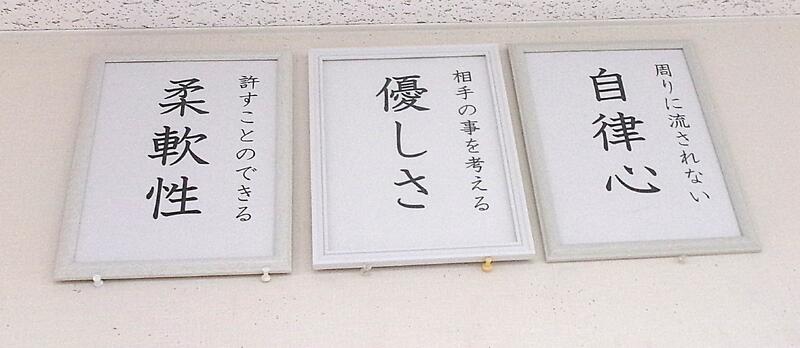 周りに流されない
自律心
相手の事を考える
優しさ
許すことのできる
柔軟性